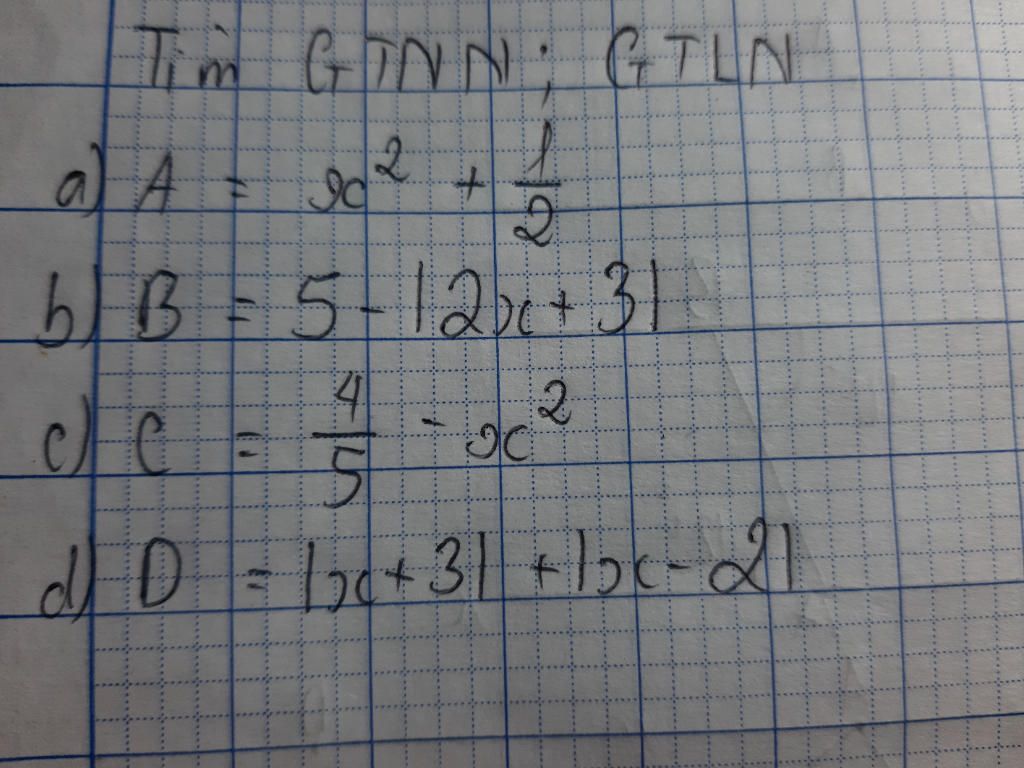 Tìm GTNN; GTLN
a) A = x² + 1/2
b) B = 5 - |2x + 3|
c) C = 4/5 - x²
d) D = |x + 3| + |x - 2|